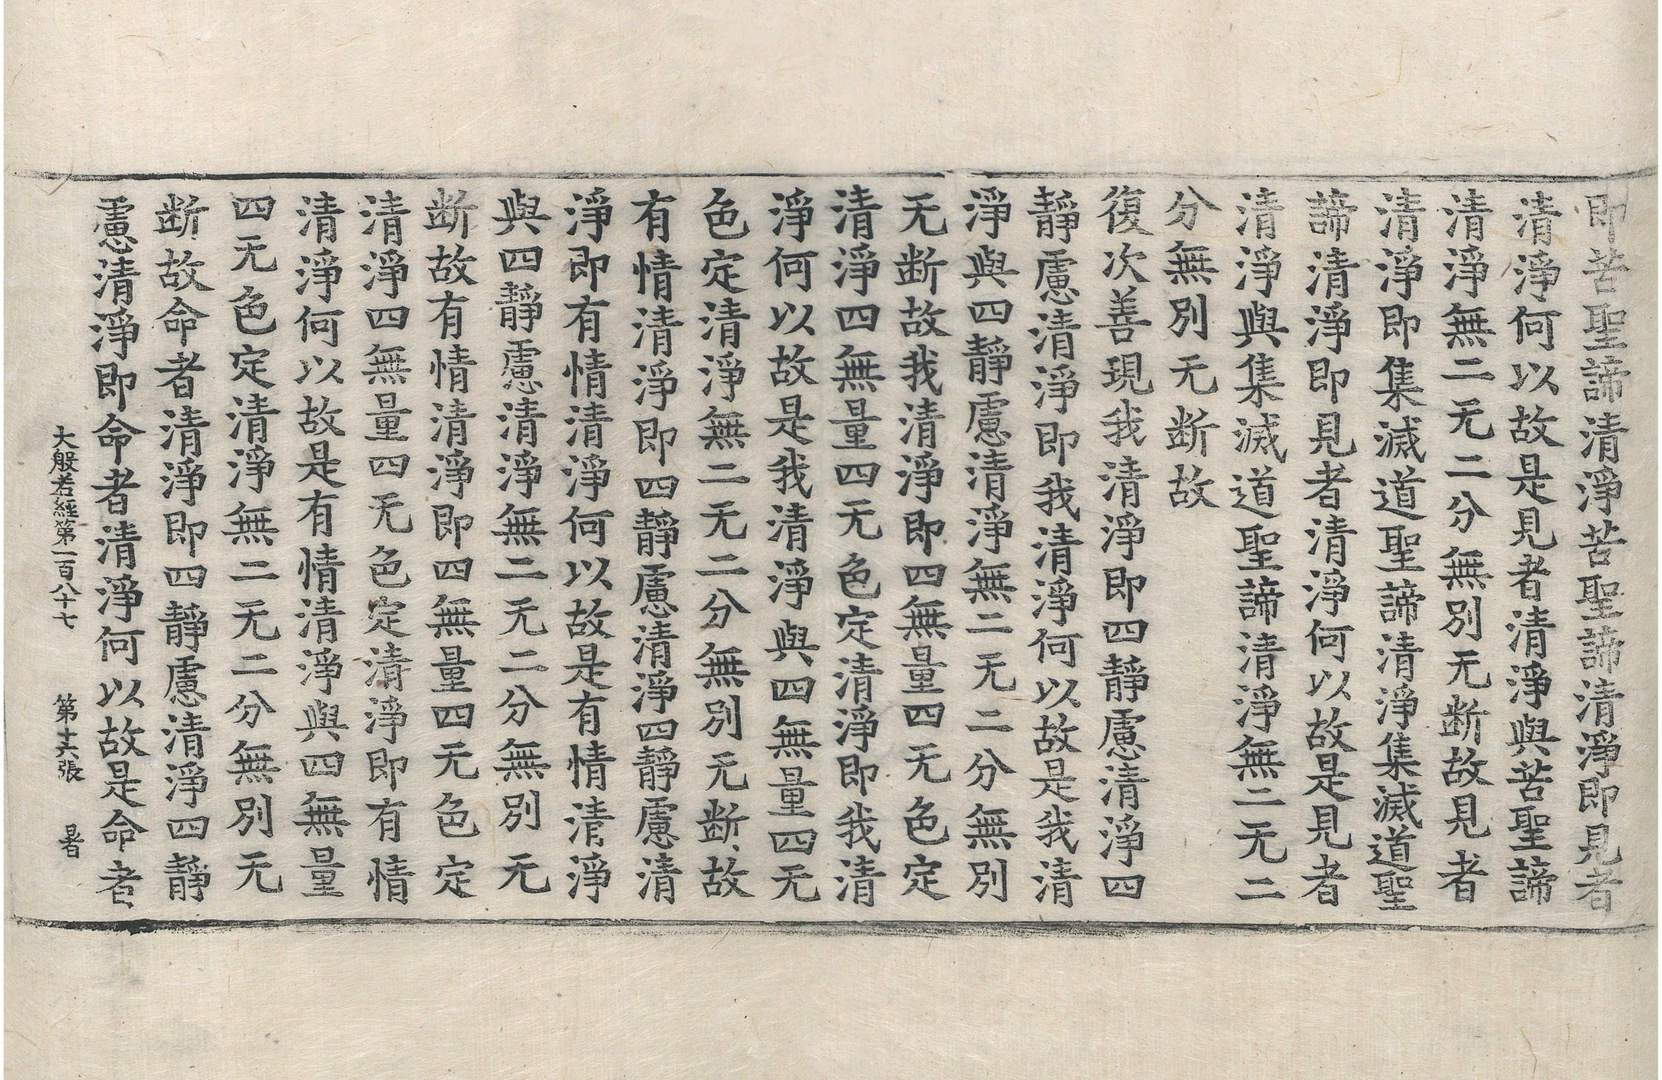 即苦聖諦清淨苦聖諦清淨即見者
清淨何以故是見者清淨與苦聖諦
清淨無二无二分無別无断故見者
清淨即集滅道聖諦清淨集滅道聖
諦清淨即見者清淨何以故是見者
清淨與集滅道聖諦清淨無二无二
分無別无断故
復次善現我清淨即四靜慮清淨四
靜慮清淨即我清淨何以故是我清
淨與四靜慮清淨無二无二分無別
无断故我清淨即四無量四无色定
清淨四無量四无色定清淨即我清
淨何以故是我清淨與四無量四无
色定清淨無二无二分無別无断故
有情清淨即四靜慮清淨四靜慮清
淨即有情清淨何以故是有情清淨
與四靜慮清淨無二无二分無別无
断故有情清淨即四無量四无色定
清淨四無量四无色定清淨即有情
清淨何以故是有情清淨與四無量
四无色定清淨無二无二分無別无
断故命者清淨即四靜慮清淨四靜
慮清淨即命者清淨何以故是命者
大般若經第一百八十七 第十六張 暑